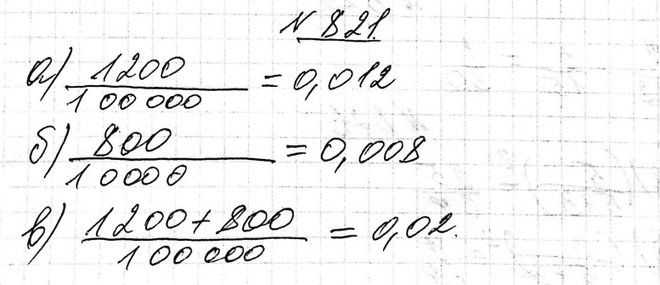 N 821.
а) 1200 / 100 000 = 0,012
б) 800 / 10000 = 0,008
в) 1200+800 / 100 000 = 0,02.